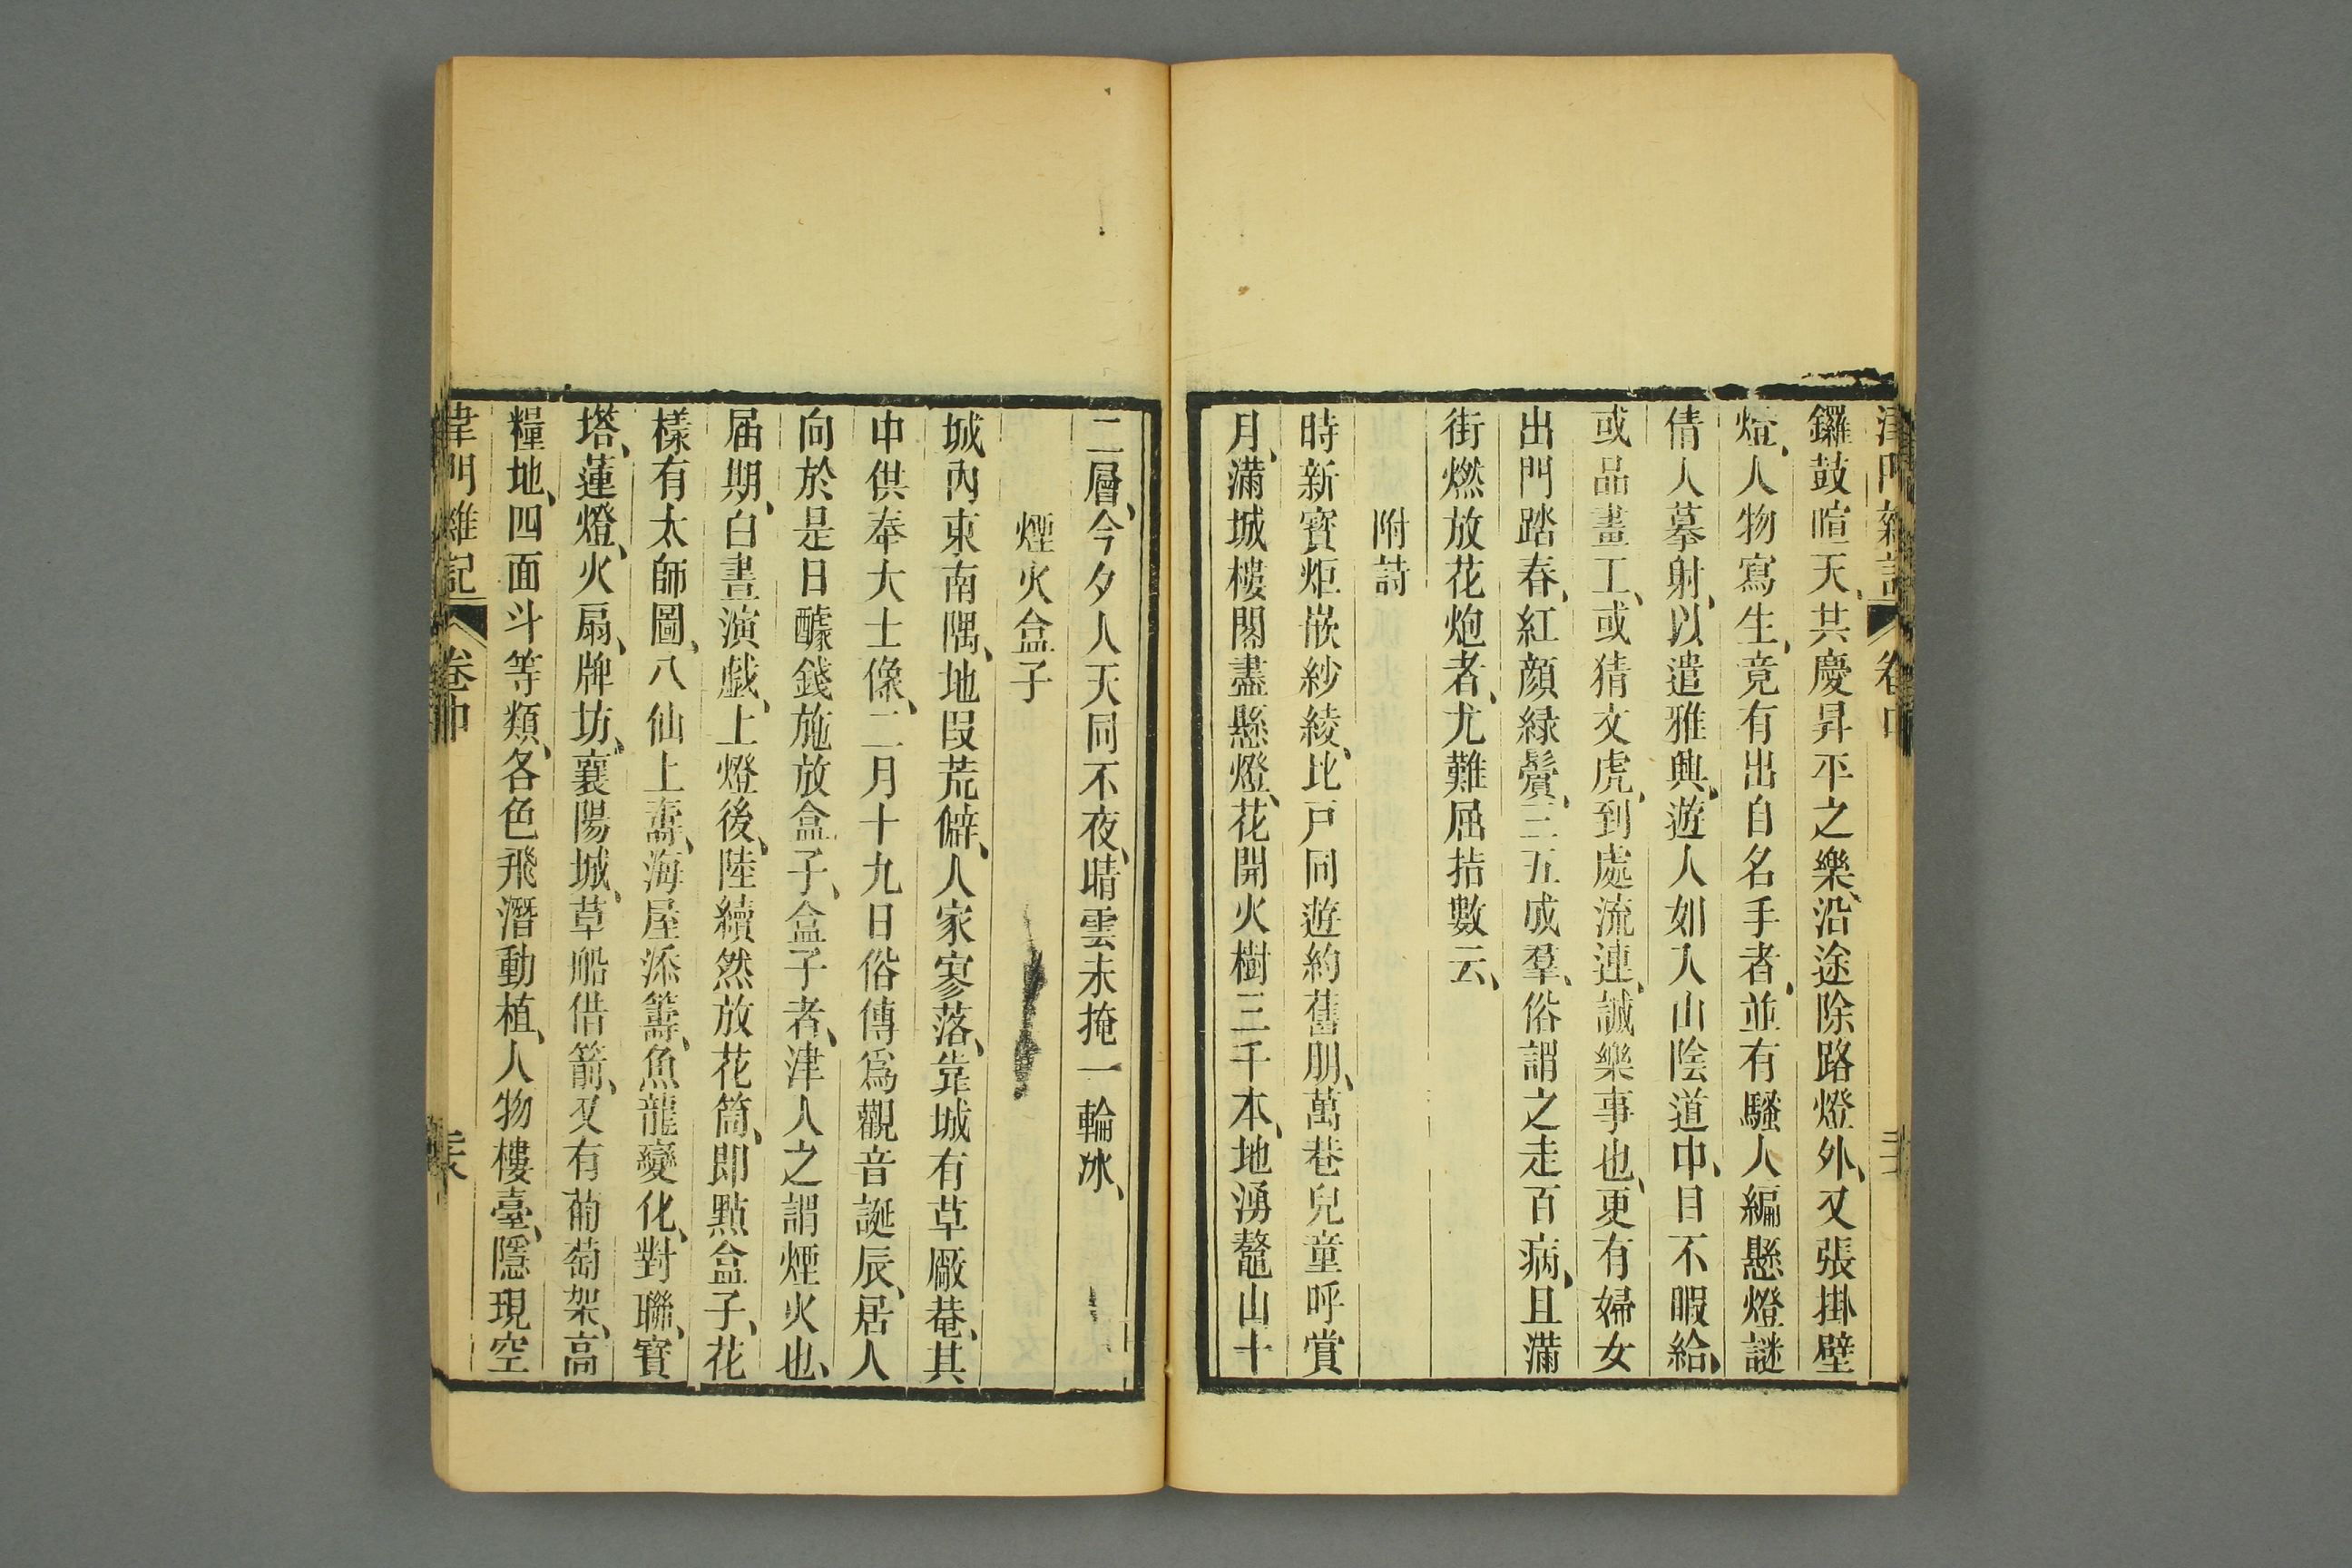 津門雜記 卷中
鑼鼓喧天、共慶昇平之樂、沿途除路燈外、又張掛壁
燈、人物寫生、竟有出自名手者、並有騷人編懸燈謎
倩人摹射、以遣雅興、遊人如入山陰道中、目不暇給、
或品畫工、或猜文虎、到處流連、誠樂事也、更有婦女
出門踏春、紅顏綠鬢、三五成羣、俗謂之走百病、且滿
街燃放花炮者、尤難屈拮數云、
附詩
時新寶炬嵌紗綾、比戸同遊約舊朋、萬巷兒童呼賞
月、滿城樓閣盡懸燈、花開火樹三千本、地湧鼇山十
二層、今夕人天同不夜、晴雲未掩一輪冰、
煙火盒子
城內東南隅、地段荒僻、人家寥落、靠城有草廠菴、其
中供奉大士像、二月十九日俗傳爲觀音誕辰、居人
向於是日醵錢施放盒子、盒子者、津人之謂煙火也、
届期、白晝演戲、上燈後、陸續然放花筒、即點盒子、花
樣有太師圖、八仙上壽、海屋添籌、魚龍變化、對聯、寶
塔、蓮燈、火扇、牌坊、襄陽城、草船借箭、又有葡萄架、高
糧地、四面斗等類、各色飛潛動植、人物樓臺、隱現空
津門雜記 卷中